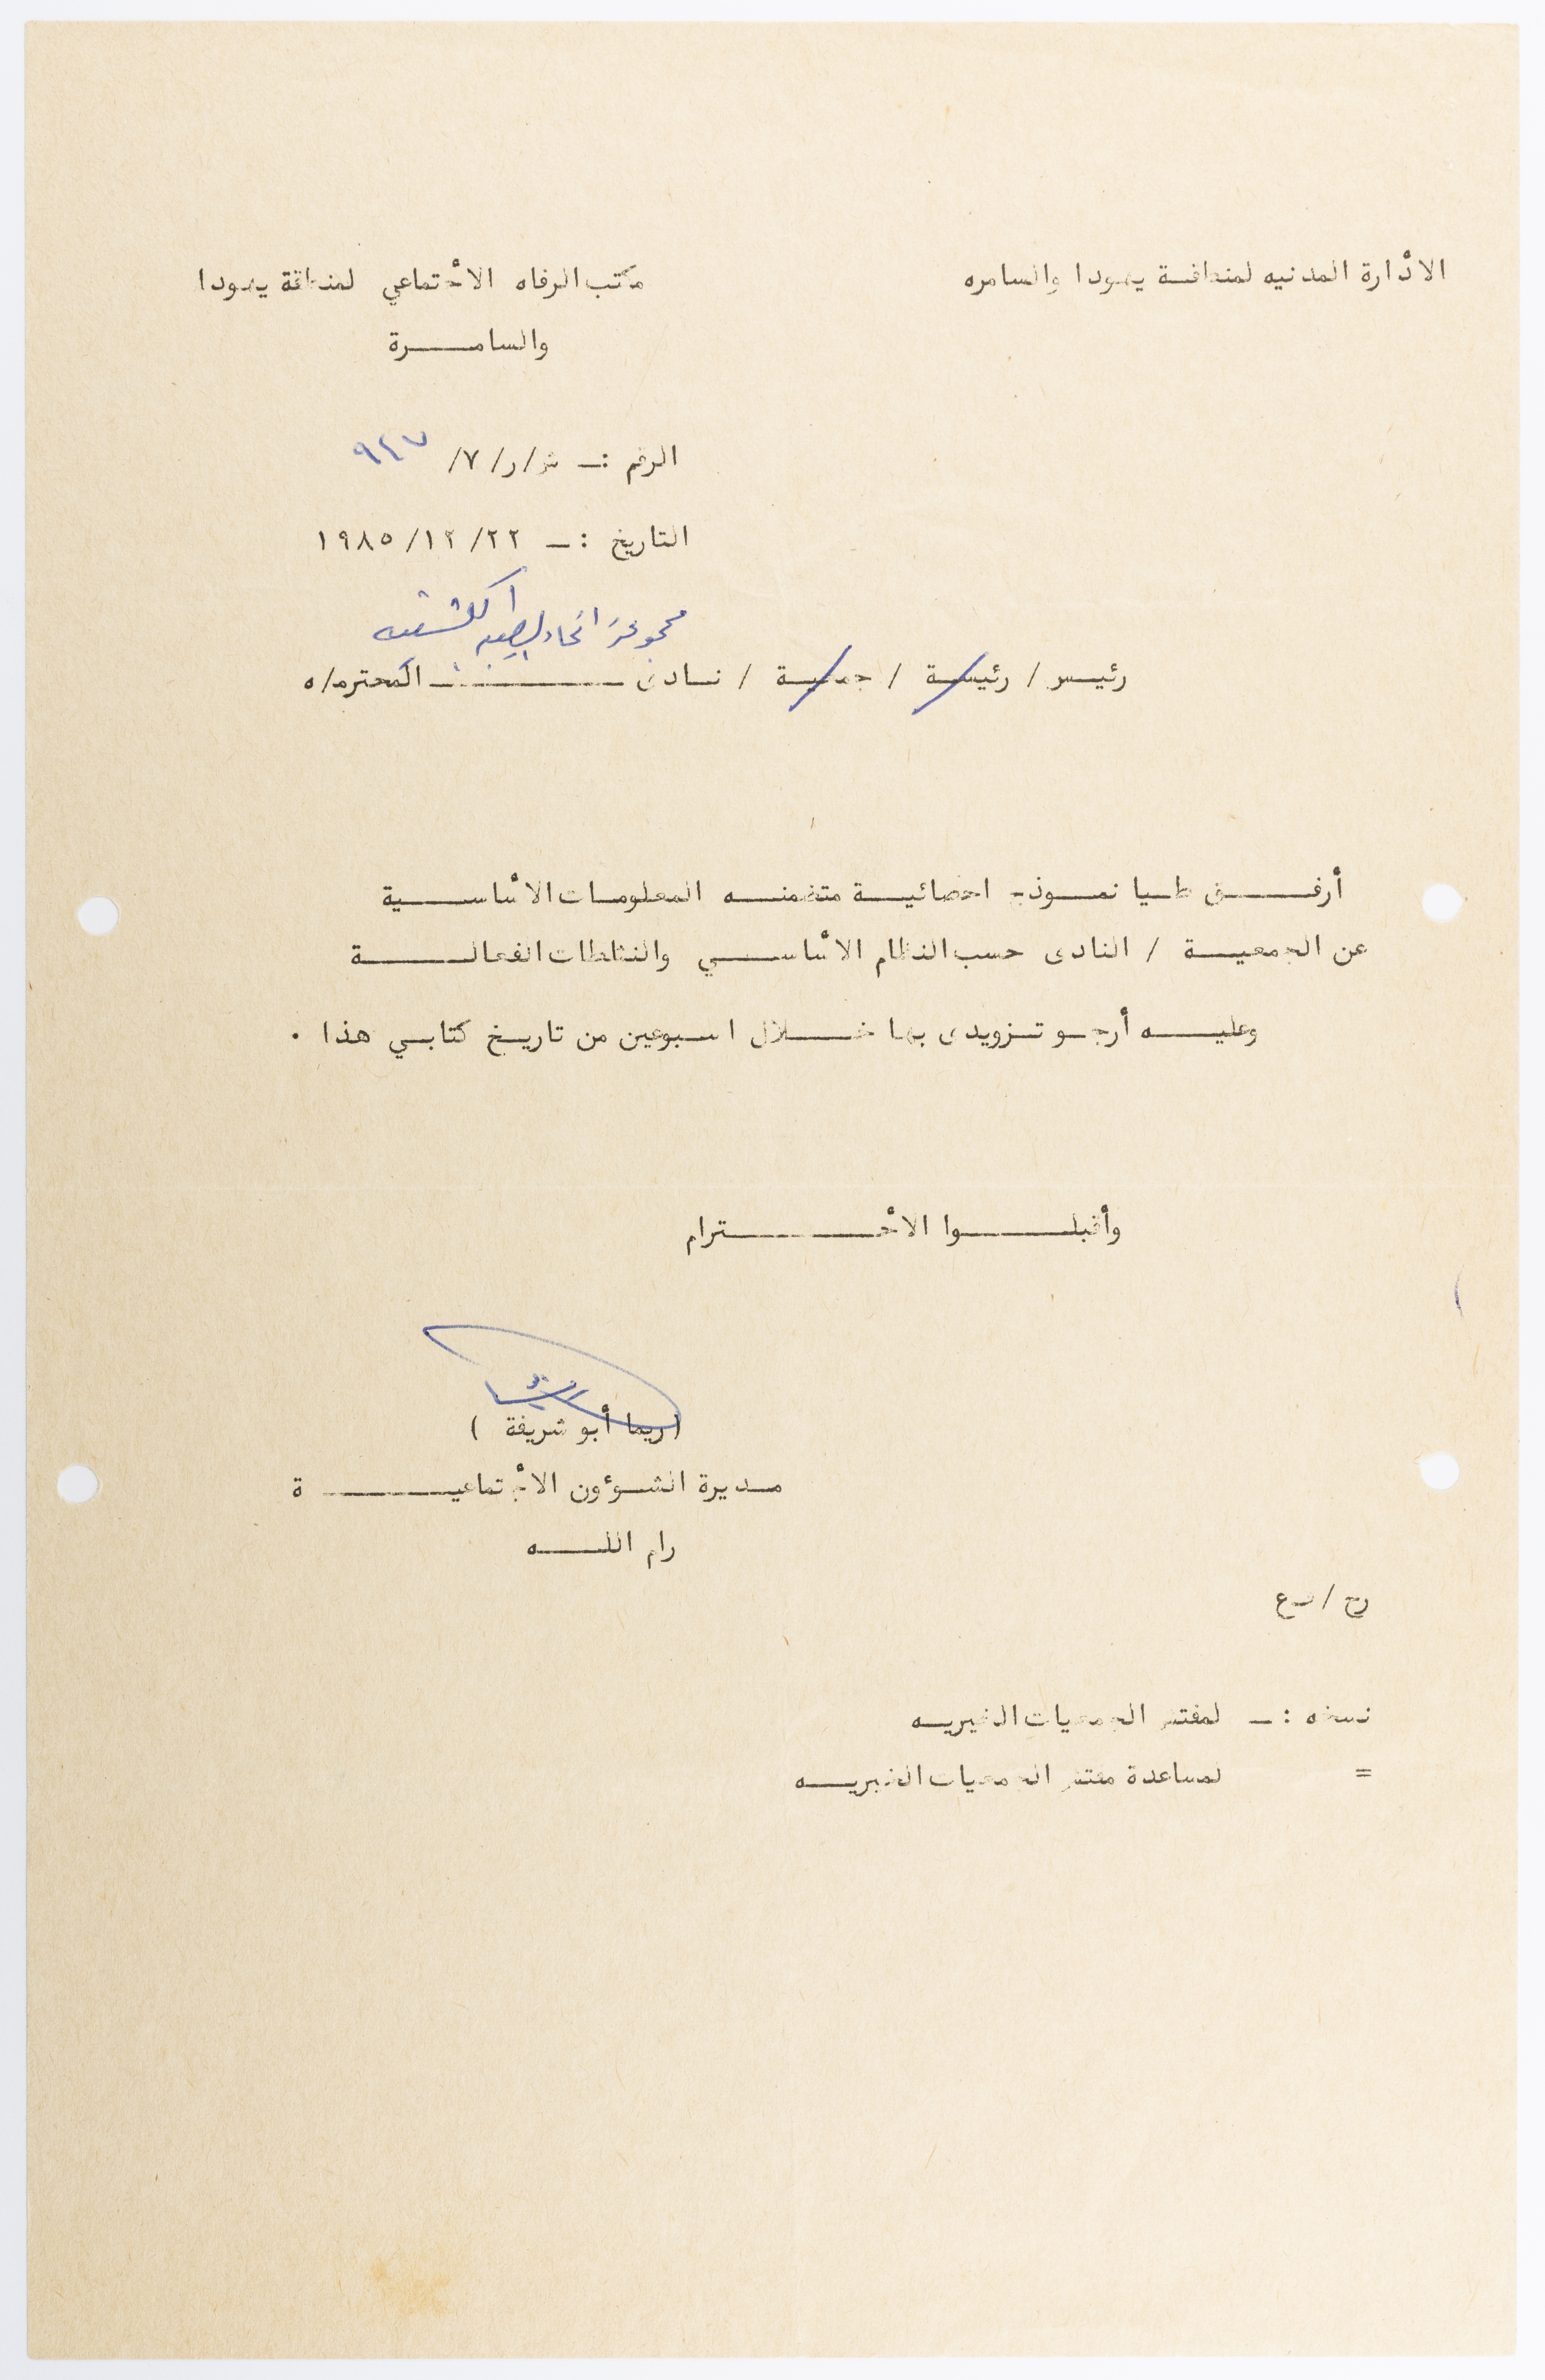 الادٔارة المدنيه لمنطقة يهودا والسامره
مكتب الرفاه الاجٔتماعي لمنطقة يهودا
والسامرة
الرقم :ـ ش/ر/٧/ ٩٤٧
التاريخ :ـ ١٩٨٥/١٢/٢٢
مجموعة اتحاد الكشفيه
رئيس / رئيسة / جمعية / نادى ــــــ المحترم/ه
أرفق طيا نموذج احصائية متضمنه المعلومات الاسٔاسية
عن الجمعية / النادى حسب النظام الاسٔاسي والنشاطات الفعالة
وعليه أرجو تزويدى بها خلال اسبوعين من تاريخ كتابي هذا .
وأقبلوا الاحٔترام
(ريما أبو شريفة )
مديرة الشؤون الاجٔتماعية
رام الله
رح / رع
نسخه :ـ لمفتش الجمعيات الخيريه
= لمساعدة مفتش الجمعيات الخيريه